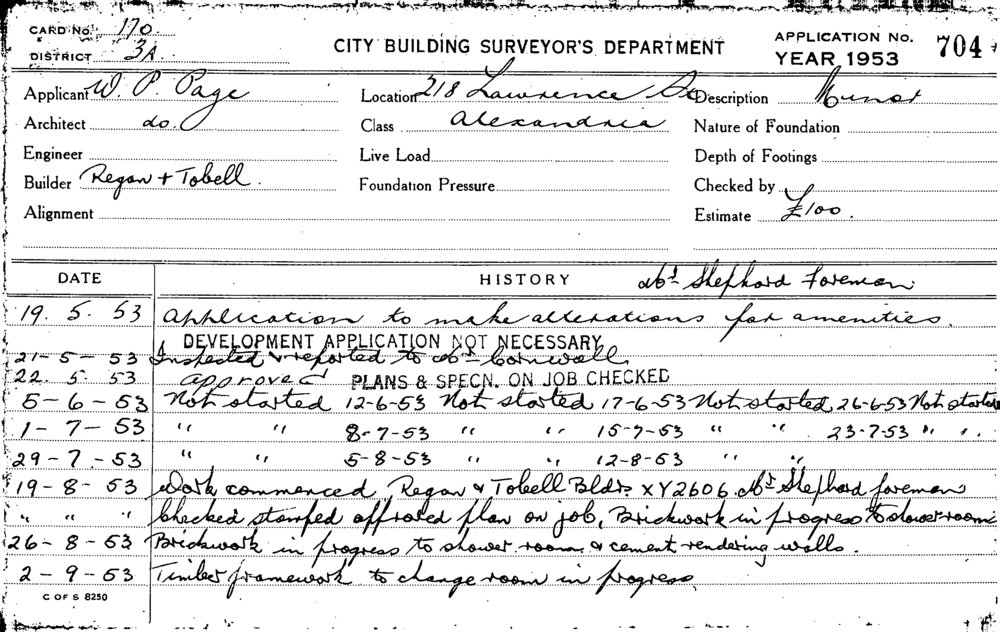 CARD No. 170.
DISTRICT 3A
CITY BUILDING SURVEYOR'S DEPARTMENT
APPLICATION No. 704
YEAR 1953
Applicant W. P. Page Location 218 Lawrence St Description Minor
Architect do. Class Alexandria Nature of Foundation
Engineer Live Load Depth of Footings
Builder Regan & Tobell. Foundation Pressure Checked by
Alignment Estimate £100.
DATE HISTORY Mr Shephard Foreman
19. 5. 53 Application to make alterations for amenities.
DEVELOPMENT APPLICATION NOT NECESSARY
21-5-53 Inspected & reported to Mr Cornwall.
22. 5. 53 approved PLANS & SPECN. ON JOB CHECKED
5-6-53 Not started 12-6-53 Not started 17-6-53 Not started 26-6-53 Not started
1-7-53 " " 8-7-53 " " 15-7-53 " " 23-7-53 " ".
29-7-53 " " 5-8-53 " " 12-8-53 " "
19-8-53 Work commenced, Regan & Tobell Bldrs XY2606 Mr Shephard foreman
" " " Checked stamped approved plan on job, Brickwork in progress to shower room
26-8-53 Brickwork in progress to shower room & cement rendering walls.
2-9-53 Timber framework to change room in progress
C OF S 8250